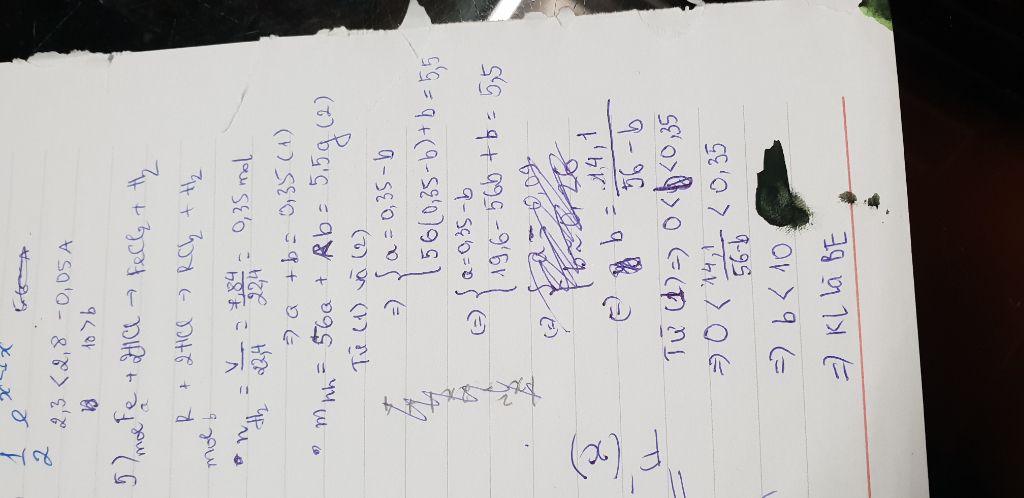 1/2 e^x-x
2,3 < 2,8 - 0,05A
10 > b
5) mol Fe + 2HCl → FeCl2 + H2
a
R + 2HCl → RCl2 + H2
mol b
• nH2 = V/22,4 = 7,84/22,4 = 0,35 mol
⇒ a + b = 0,35 (1)
• mhh = 56a + Rb = 5,5g (2)
Từ (1) và (2)
⇒ { a = 0,35 - b
56(0,35-b) + b = 5,5
(=) { a = 0,35 - b
19,6 - 56b + b = 5,5
(=) b = 14,1/56-b
Từ (1) => 0 < b < 0,35
=> 0 < 14,1/56-b < 0,35
=> b < 10
=> KL là BE